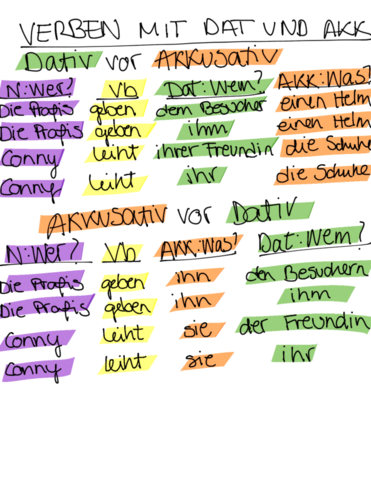 VERBEN MIT DAT UND AKK
Dativ vor AKKUSATIV
N:Wer? Vb Dat:Wem? AKK:Was?
Die Profis geben dem Besucher einen Helm
Die Profis geben ihm einen Helm
Conny leiht ihrer Freundin die Schuhe
Conny leiht ihr die Schuhe
AKKUSATIV vor Dativ
N:Wer? Vb AKK:Was? Dat:Wem?
Die Profis geben ihn den Besuchern
Die Profis geben ihn ihm
Conny leiht sie der Freundin
Conny leiht sie ihr